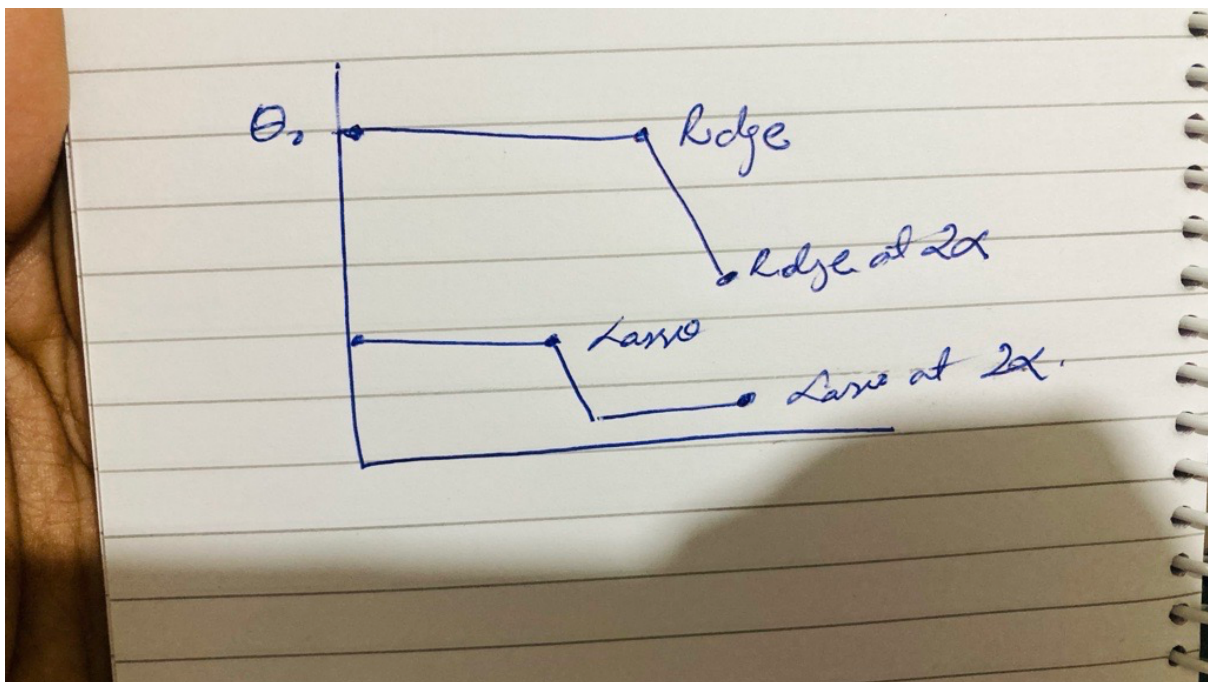 θ₀ Ridge
Ridge at 2α
Lasso
Lasso at 2α.